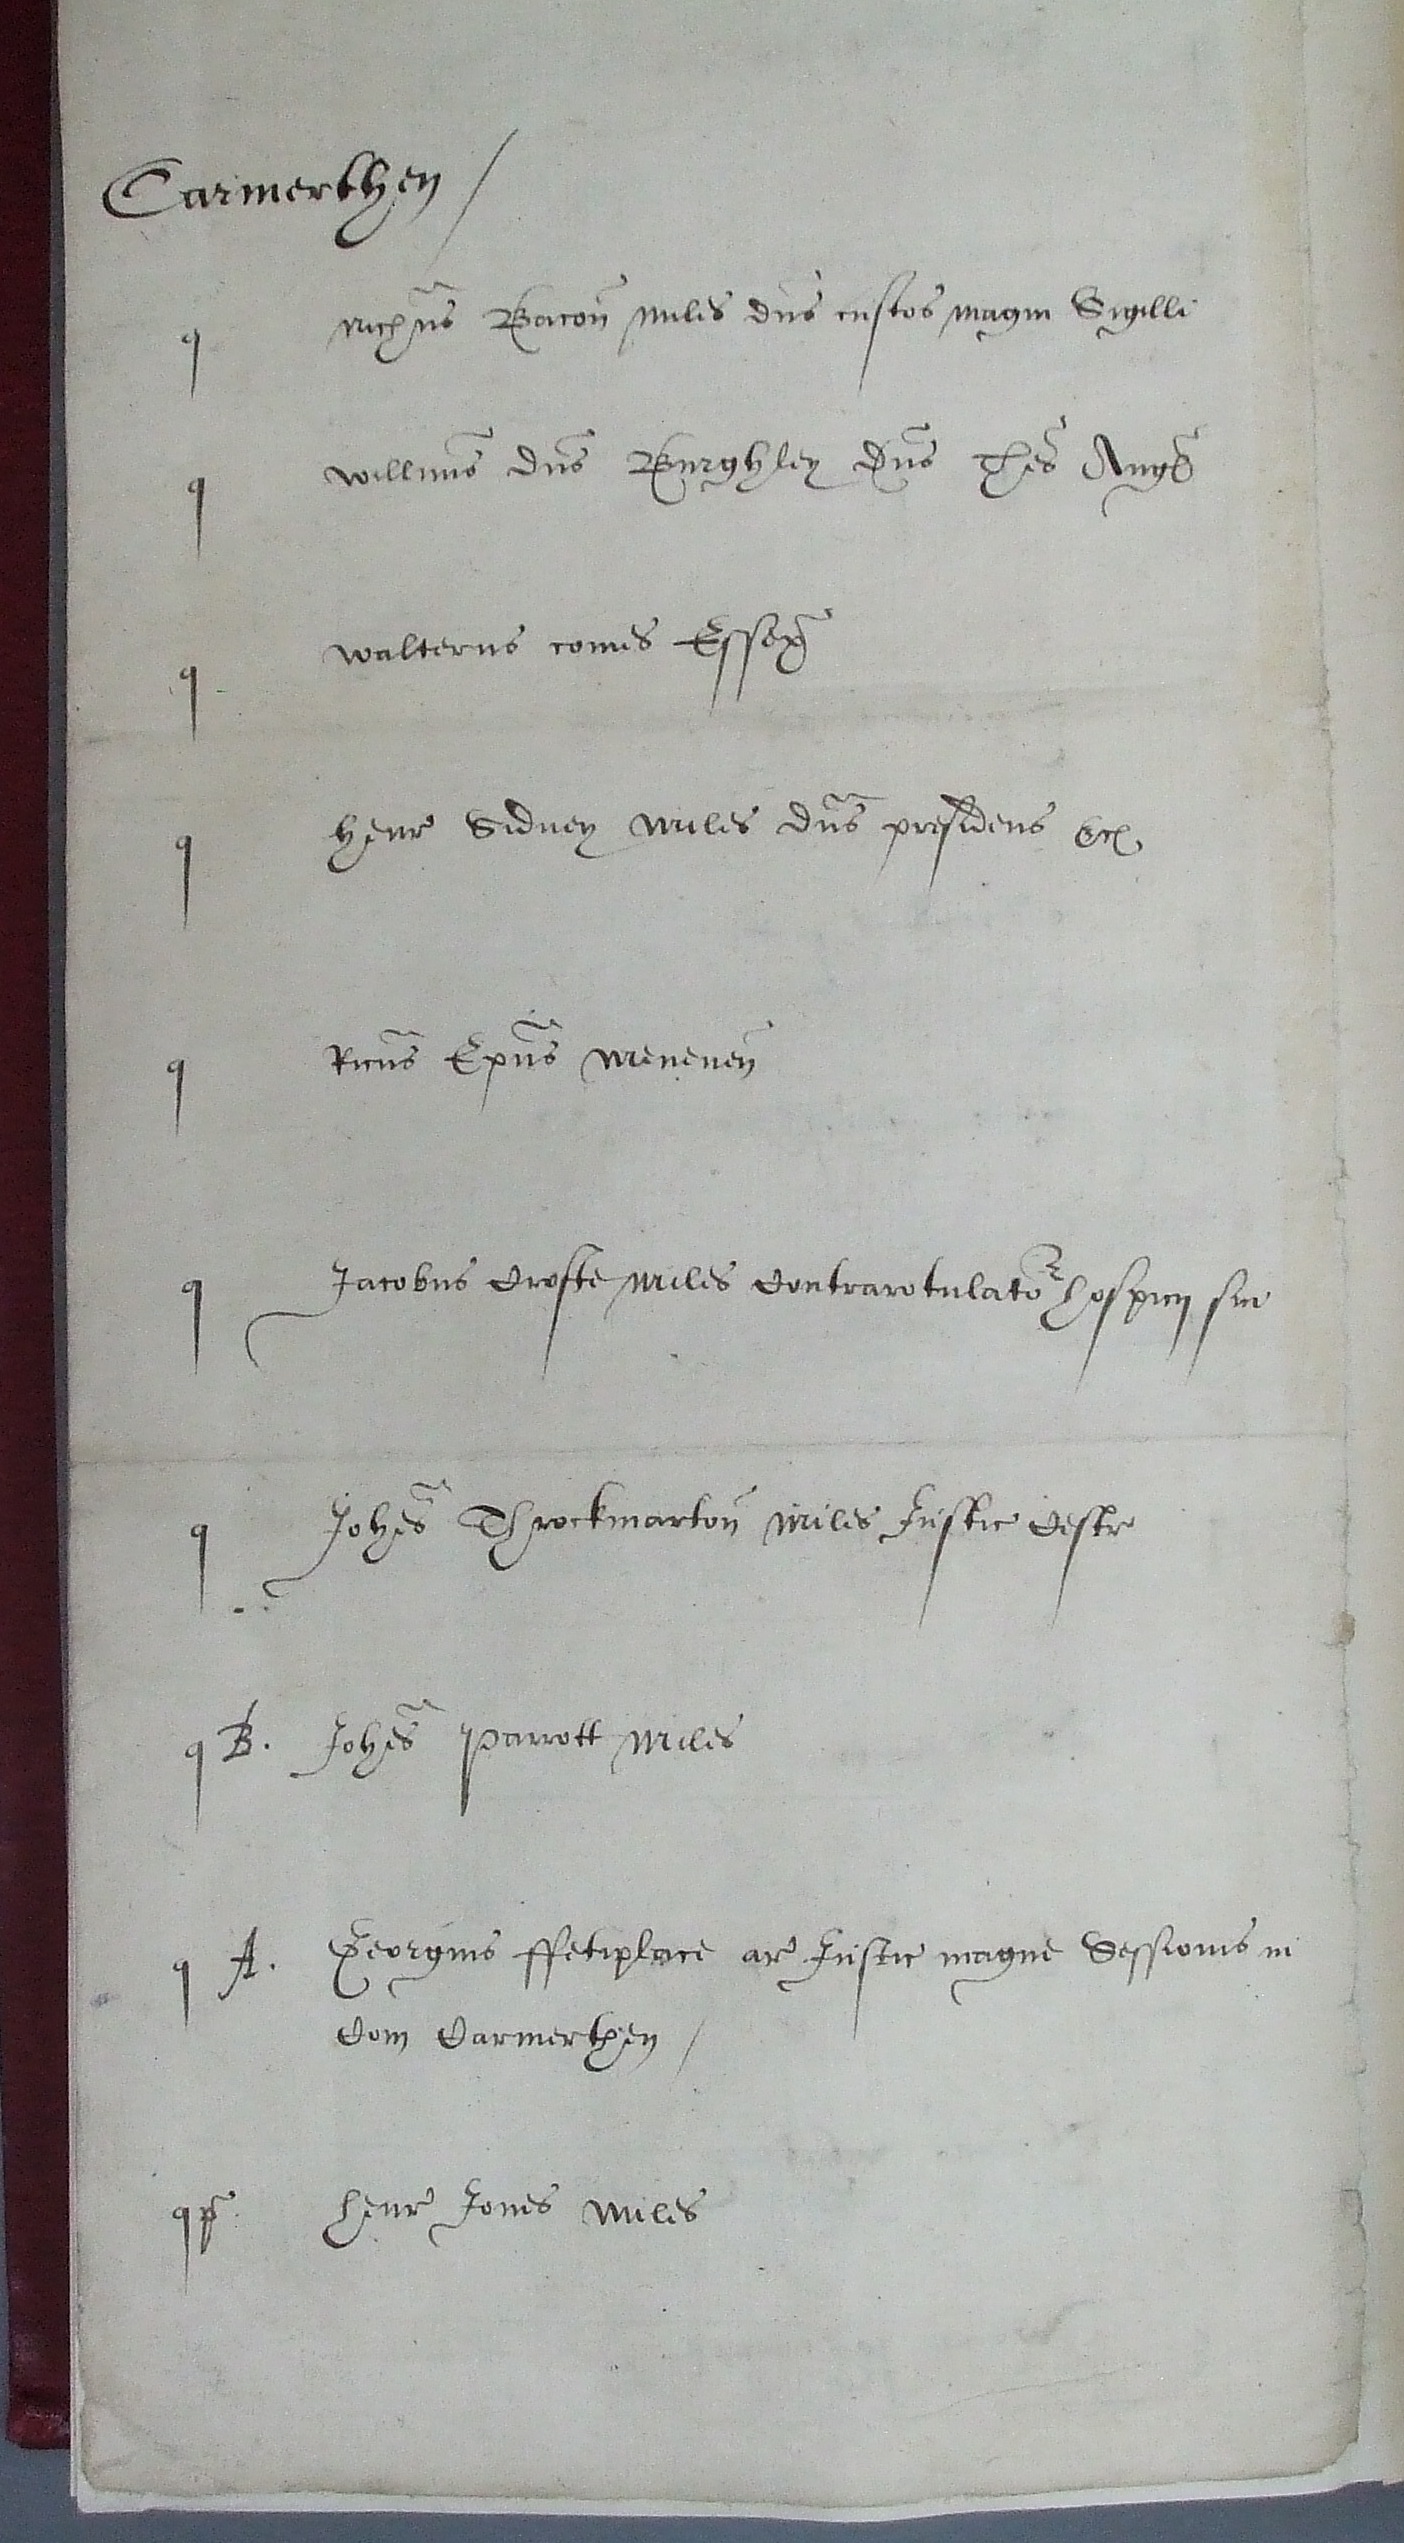 Carmerthen /
q Nichus Bacon miles dns custos magni Sigilli
q Willmus dns Burghley dns Thes Angl
q Walterus comes Essex
q Henr Sidney miles dns presidens &c
q Ricus Epus Meneven
q Jacobus Crofte miles Contrarotulator hospicij sui
q Johes Throckmarton miles Justic Cestr
q B. Johes Parrott miles
q A. Georgius ffetiplace ar Justic magne Sessionis in
Com Carmerthen /
q p Henr Jones miles